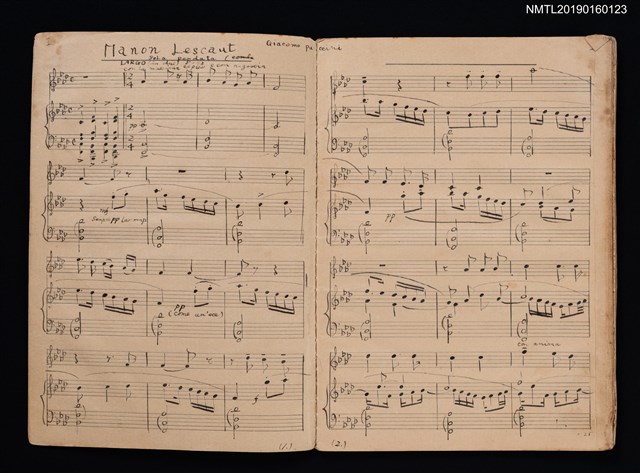 NMTL20190160123
Manon Lescaut
Giacomo Puccini
Sola perduta
LARGO
pp
Sempre pp
pp
(come un'eco)
(1.)
pp
con anima
(2.)